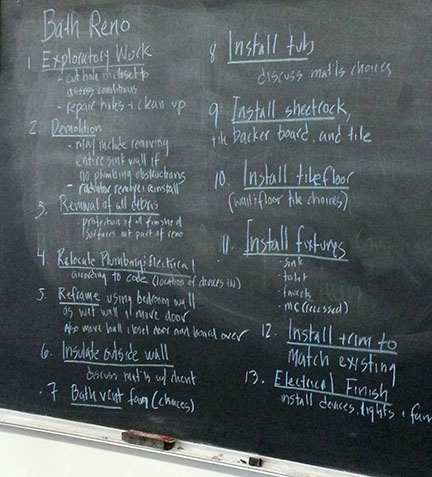 Bath Reno
1. Exploratory Work
- cut hole in closet to
assess conditions
- repair holes + clean up
2. Demolition
- may include removing
entire sink wall if
no plumbing obstructions
- radiator remove + reinstall
3. Removal of all debris
- protection of all finished
surfaces not part of reno
4. Relocate Plumbing; Electrical
according to code (location of devices
5. Reframe using bedroom wall
as wet wall + move door
Also move hall closet door and board over
6. Insulate outside wall
discuss mat'ls w/ client
7. Bath vent fan (choices)
8 Install tub
discuss mat'ls choices
9 Install sheetrock,
tile backer board, and tile
10. Install tile floor
(wall; floor tile choices)
11. Install fixtures
- sink
- toilet
- faucets
- mc (recessed)
12. Install trim to
match existing
13. Electrical Finish
install devices, lights + fan